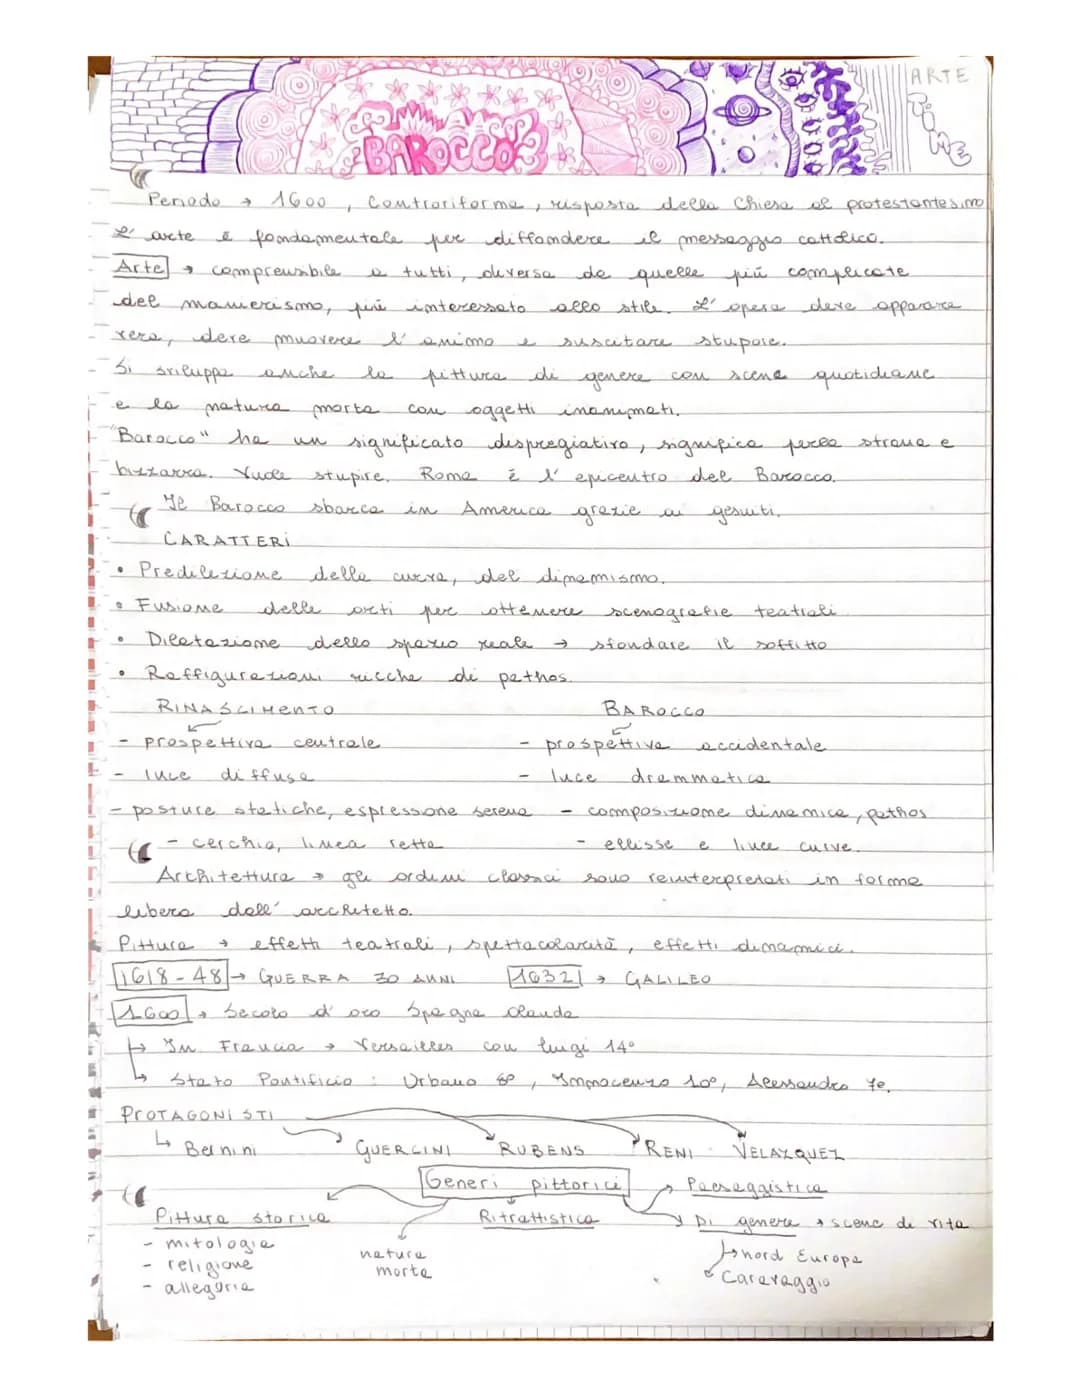 ARTE
TiME
BAROCCO
Periodo → 1600, Controriforma, risposta della Chiesa al protestantesimo
L'arte è fondamentale per diffondere il messaggio cattolico.
Arte → comprensibile a tutti, diversa da quelle più complicate
del manierismo, più interessato allo stile. L'opera deve apparire
vera, deve muovere l'animo e suscitare stupore.
Si sviluppa anche la pittura di genere con scene quotidiane
e la natura morta con oggetti inanimati.
"Barocco" ha un significato dispregiativo, significa perla strana e
bizzarra. Vuole stupire. Roma è l'epicentro del Barocco.
Il Barocco sbarca in America grazie ai gesuiti.
CARATTERI
• Predilezione della curva, del dinamismo.
• Fusione delle arti per ottenere scenografie teatrali
• Dilatazione dello spazio reale → sfondare il soffitto
• Raffigurazioni ricche di pathos.
RINASCIMENTO BAROCCO
- prospettiva centrale - prospettiva accidentale
- luce diffusa - luce drammatica
- posture statiche, espressione serena - composizione dinamica, pathos
- cerchio, linea retta - ellisse e linee curve.
Architettura → gli ordini classici sono reinterpretati in forma
libera dall'architetto.
Pittura → effetti teatrali, spettacolarità, effetti dinamici.
1618-48 → GUERRA 30 ANNI 1632 → GALILEO
1600 → Secolo d'oro Spagna Olanda
↳ In Francia → Versailles con Luigi 14°
↳ Stato Pontificio: Urbano 8°, Innocenzo 10°, Alessandro 7°.
PROTAGONISTI
↳ Bernini GUERCINI RUBENS RENI VELAZQUEZ
Generi pittorici Paesaggistica
Pittura storica Ritrattistica Di genere → scene di vita
- mitologia natura ↳ nord Europa
- religione morta Caravaggio
- allegoria